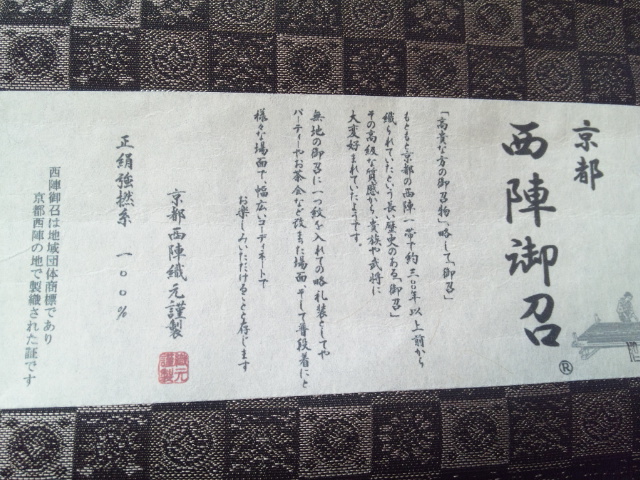 京都
西陣御召
®
「高貴な方の御召物」略して「御召」
もともと京都の西陣一帯で約三〇〇年以上前から
織られていたという長い歴史のある「御召」
その高級な質感から、貴族や武将に
大変好まれていたようです。
無地の御召に一つ紋を入れての略礼装としてや
パーティーやお茶会など改まった場面、そして普段着にと
様々な場面で、幅広いコーディネートで
お楽しみいただけることと存じます
京都西陣織元謹製
織元謹製
正絹強撚糸 一〇〇%
西陣御召は地域団体商標であり
京都西陣の地で製織された証です